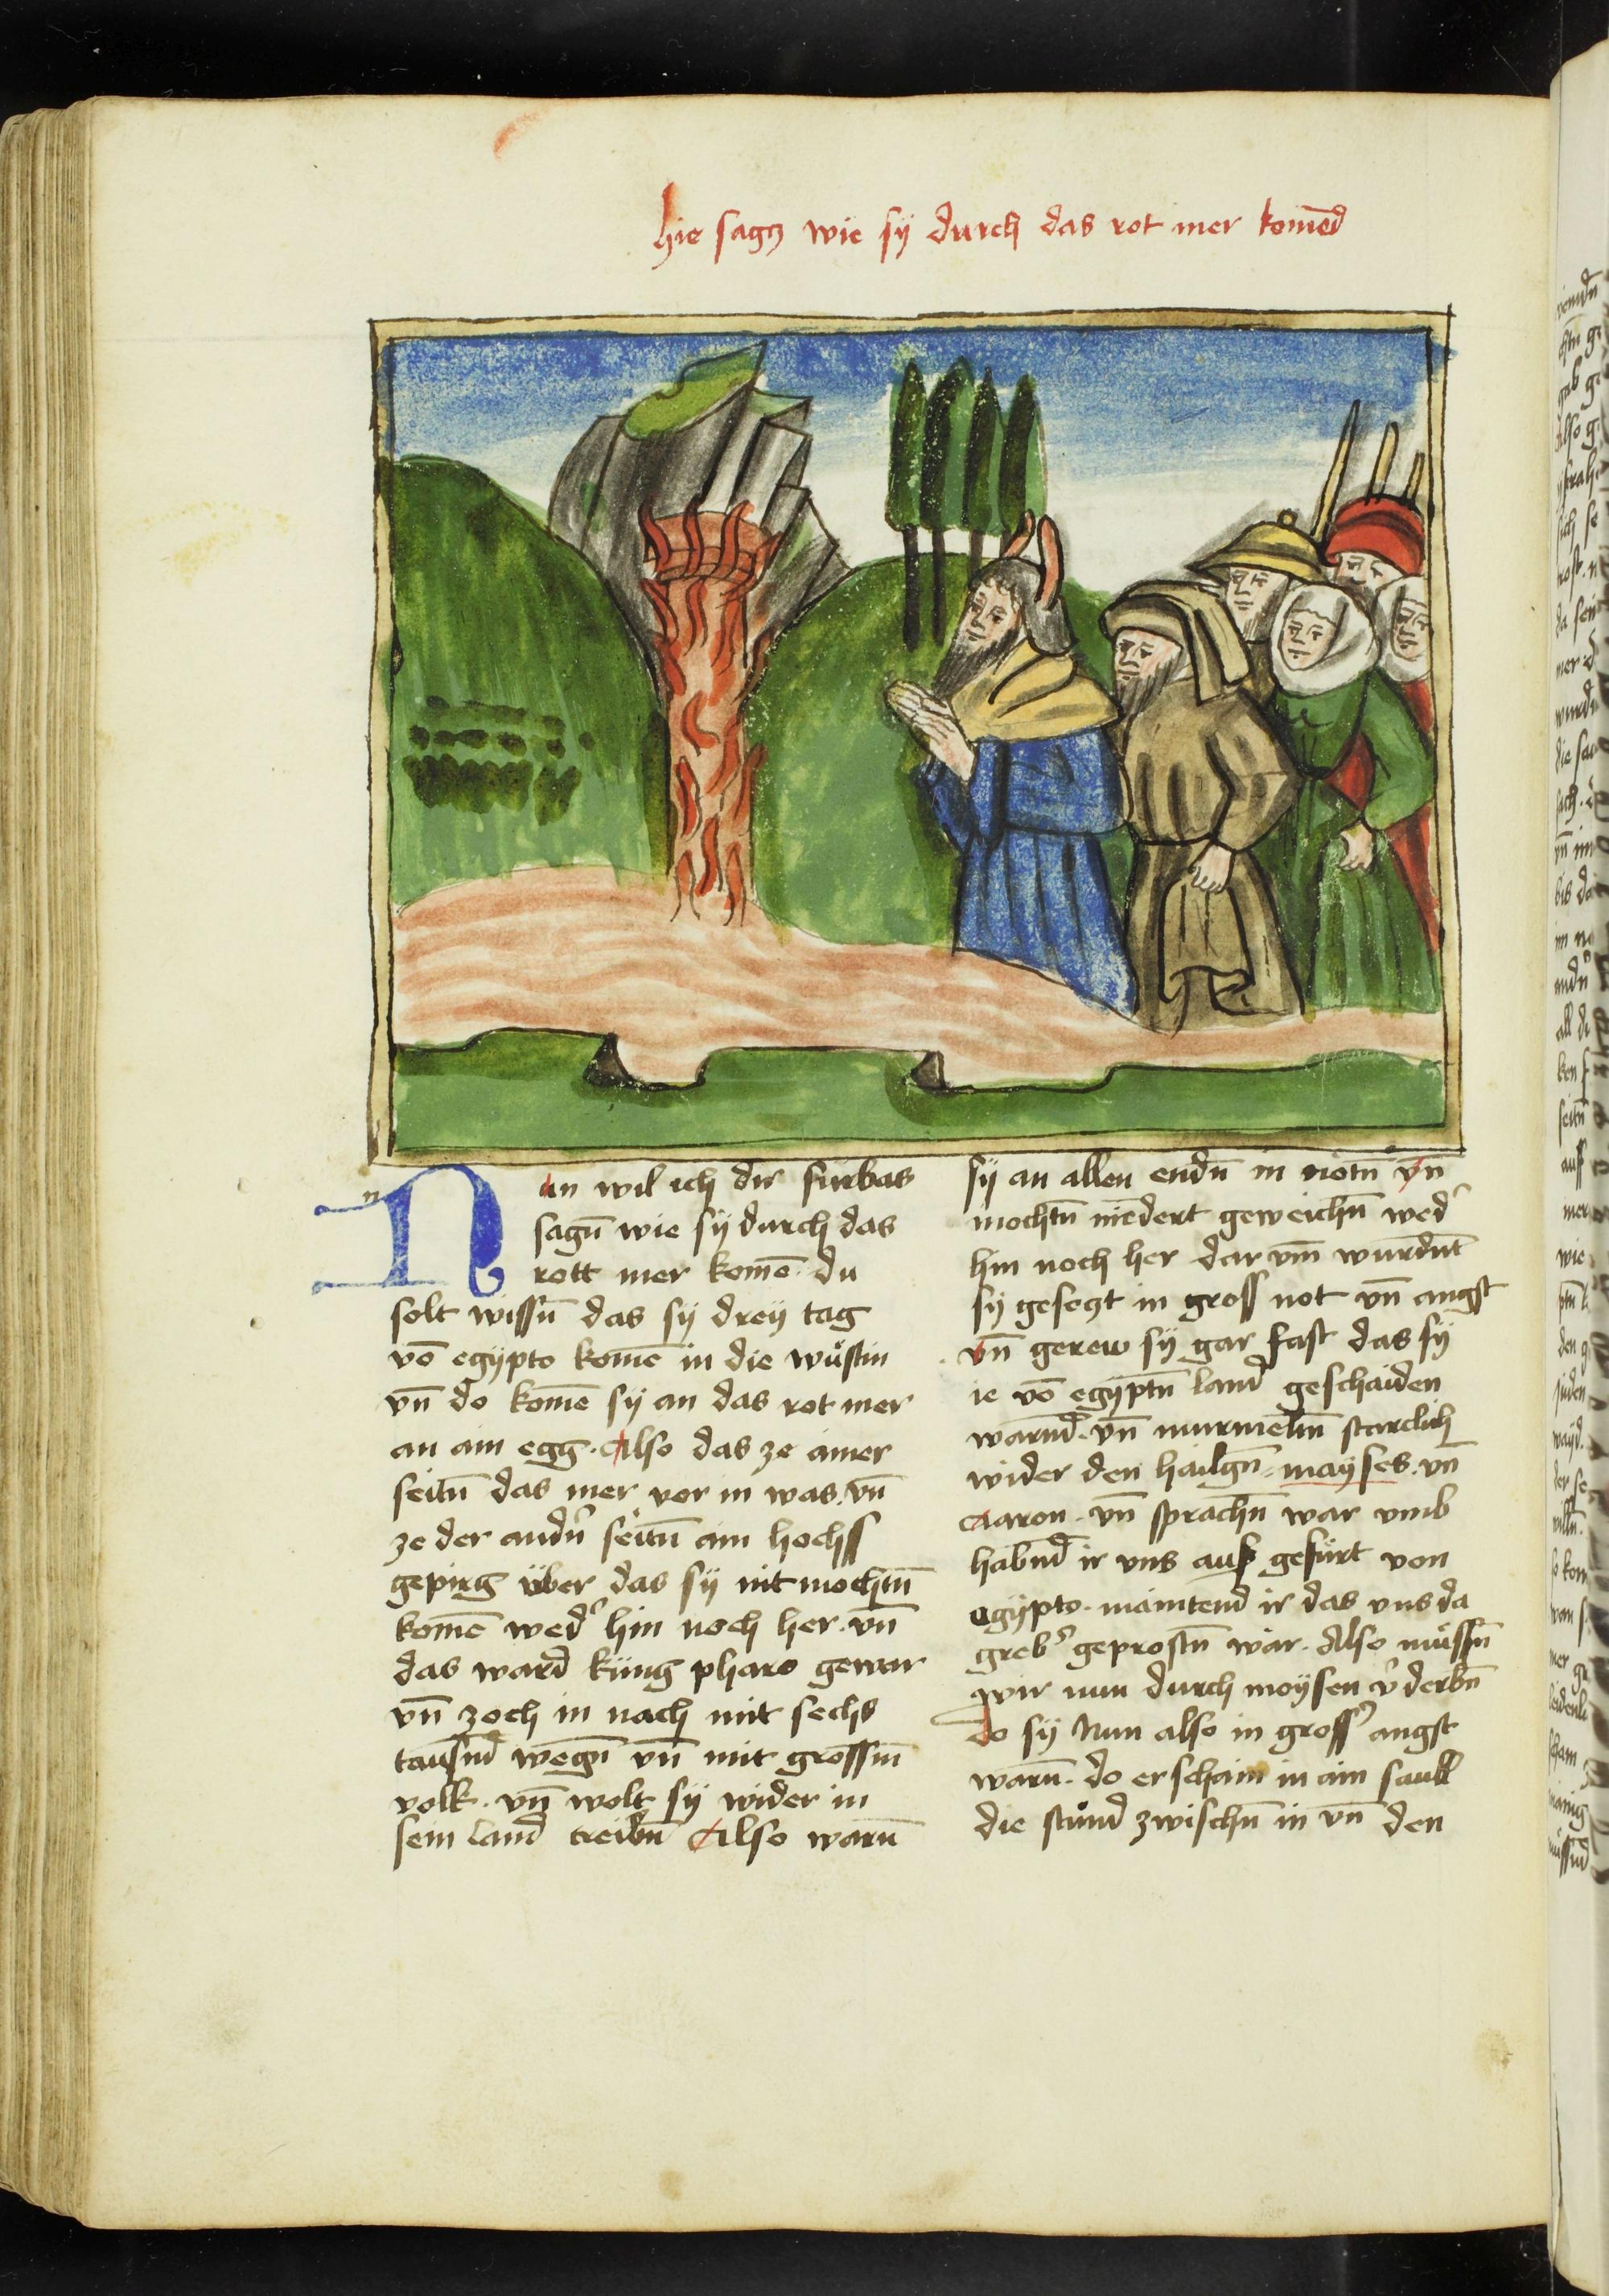 hie sagt wie sÿ durch das rot mer komēd
Nun wil ich dir fürbas
sagn̄ wie sÿ durch das
rott mer komē · du
solt wissn̄ das sÿ dreÿ tag
vō egÿpto komē in die wüstin
vn̄ do komē sÿ an das rot mer
an ain egg · Also das ze ainer
seitn̄ das mer vor in was · vn̄
ze der andn̄ seitn̄ ain hochs
gepirg über das sÿ nit mochtn̄
komē wed͛ hin noch her · vn̄
das ward küng pharo gewar
vn̄ zoch in nach mit sechs
tausn̄d wegn̄ vn̄ mit grossm̄
volk · vn̄ wolt sÿ wider in
sein land treibn̄ Also warn̄
sÿ an allen endn̄ in nötn̄ vn̄
mochtn̄ niedert geweichn̄ wed͛
hin noch her dar vm̄ wurdn̄t
sÿ gesetzt in gross not vn̄ angst
vn̄ gerew sÿ gar fast das sÿ
ie vō egÿptn̄ land geschaiden
warn̄d · vn̄ murmeltn̄ starclich
wider den hailgn̄ · maÿses · vn̄
Aaron · vn̄ sprachn̄ war vmb
habn̄d ir vns aus gefürt von
egÿpto · maintend ir das vns da
greb͛ geprostn̄ wär · Also müssn̄
wir nun durch moÿsen v͛derbn̄
do sÿ Nun also in gross͛ angst
warn̄ · do erschain in ain saull
die stund zwischn̄ in vn̄ den